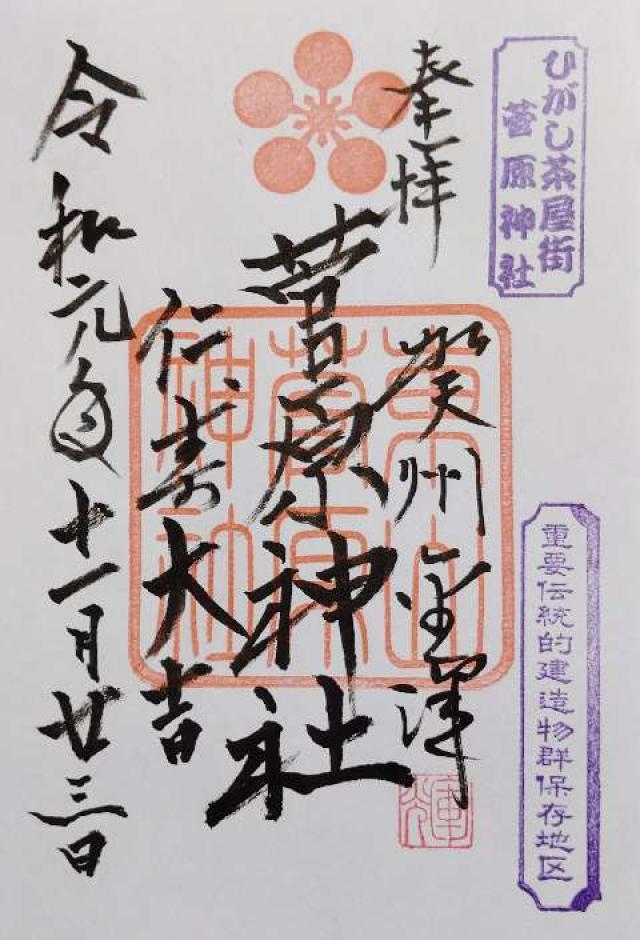 ひがし茶屋街
菅原神社
重要伝統的建造物群保存地区
奉拝
州金澤
輝
菅原神社
東山
菅原
神社
仁寿大吉
令和元年十一月廿三日